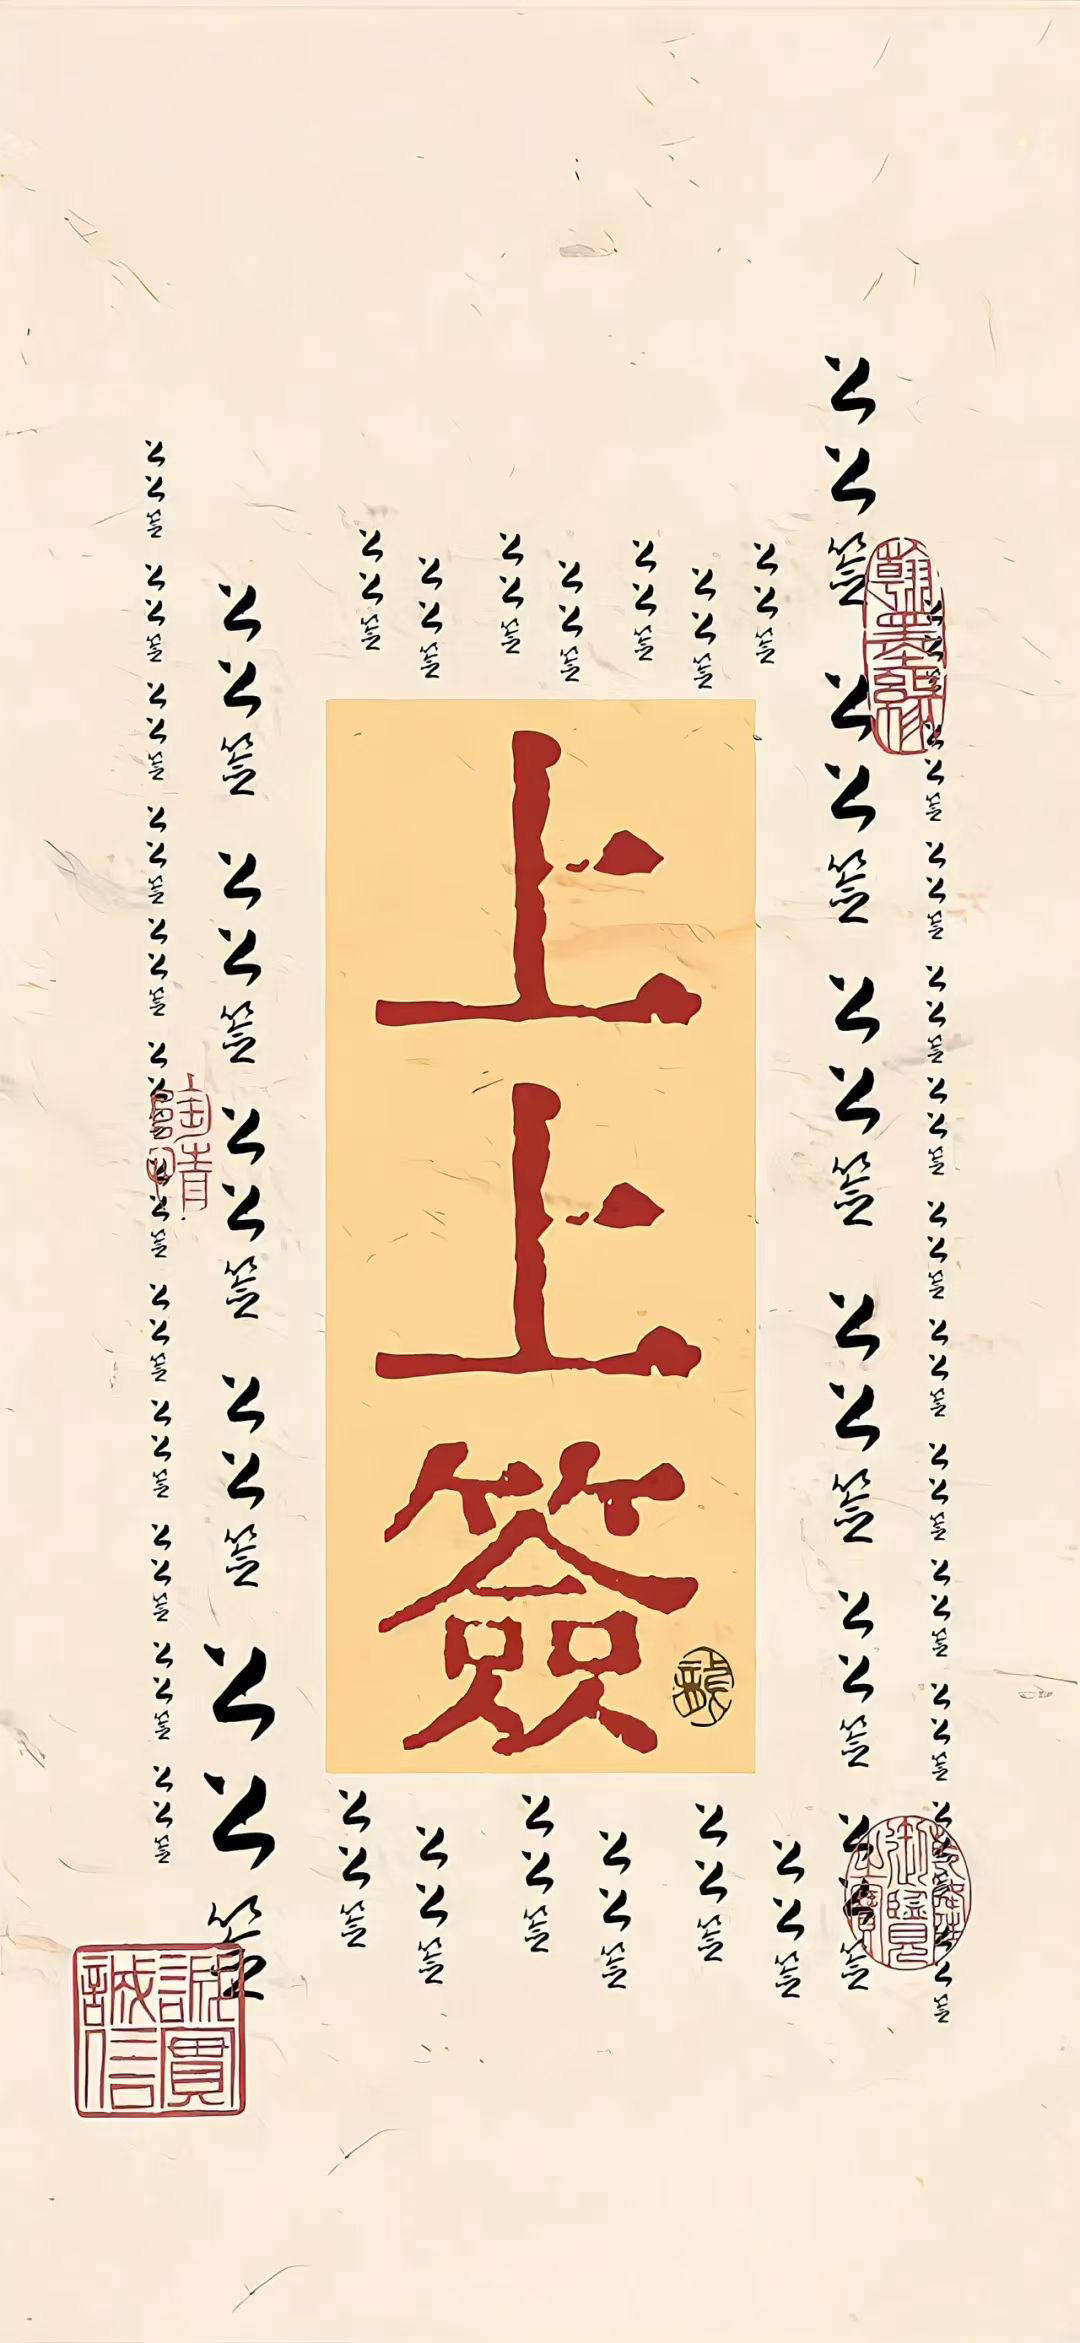 上上签 上上签 上上签 上上签 上上签 上上签 上上签 上上签 上上签 上上签 上上签 上上签
翰墨緣
上上签 上上签 上上签 上上签 上上签 上上签
乾隆御覽之寶
上上签
上上签
上上签
上上签
上上签
上上签
上上签
上上簽
龍
上上签
上上签
上上签
上上签
上上签
上上签
上上签 上上签 上上签 上上签 上上签
上上签 上上签 上上签 上上签 上上签 上上签 上上签 上上签 上上签 上上签 上上签 上上签
誠實
誠信